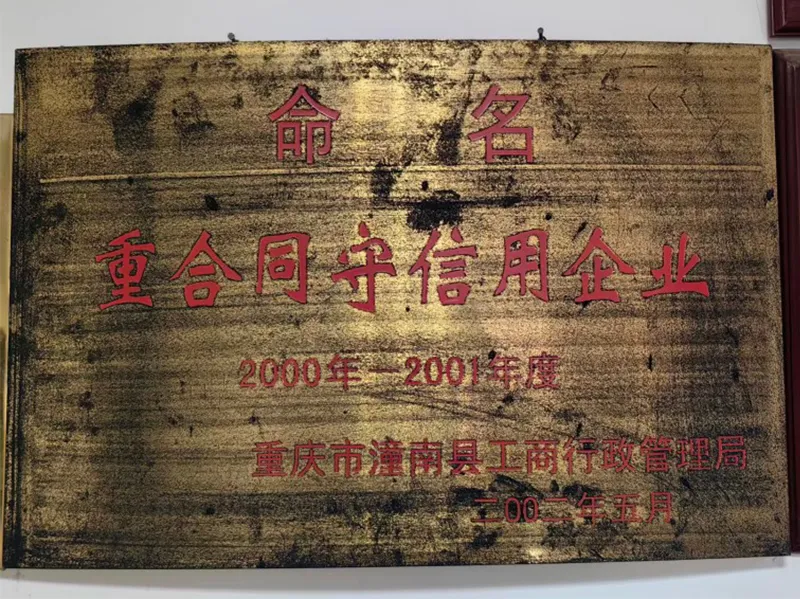 命名
重合同守信用企业
2000年－2001年度
重庆市潼南县工商行政管理局
二00二年五月